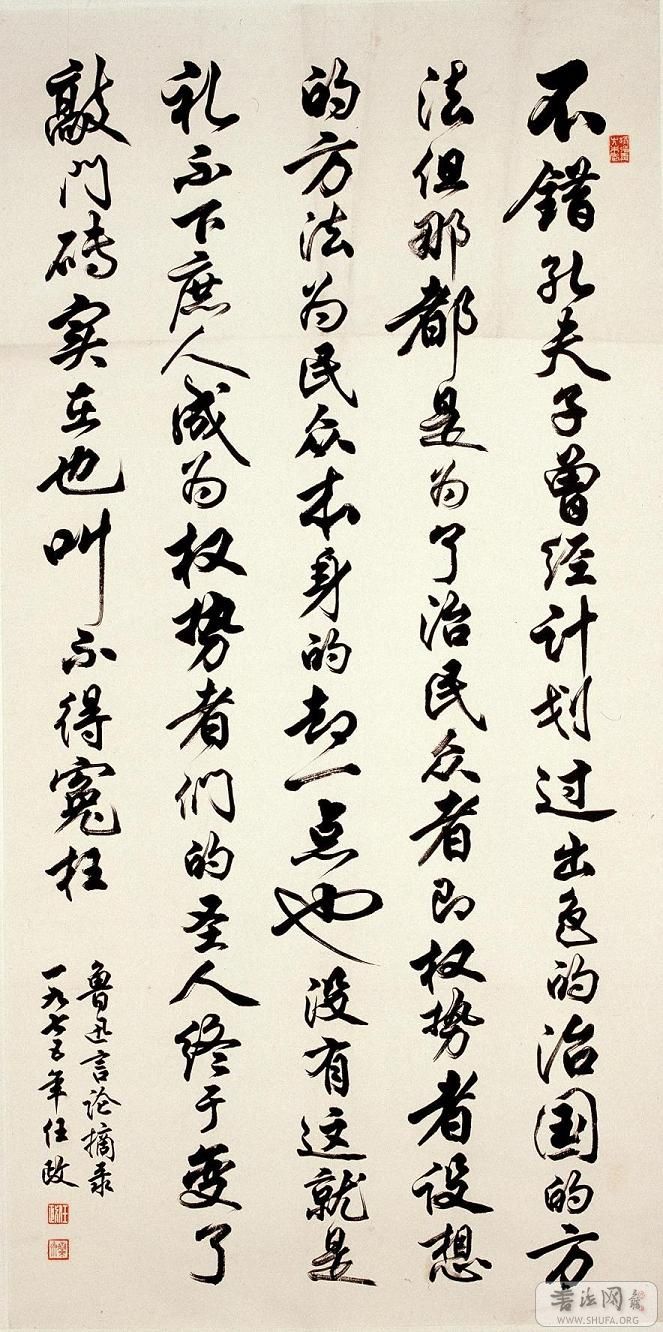 不错孔夫子曾经计划过出色的治国的方
法但那都是为了治民众者即权势者设想
的方法为民众本身的却一点也没有这就是
礼不下庶人成为权势者们的圣人终于变了
敲门砖实在也叫不得冤枉
鲁迅言论摘录
一九七五年任政
书法网
WWW.SHUFA.ORG